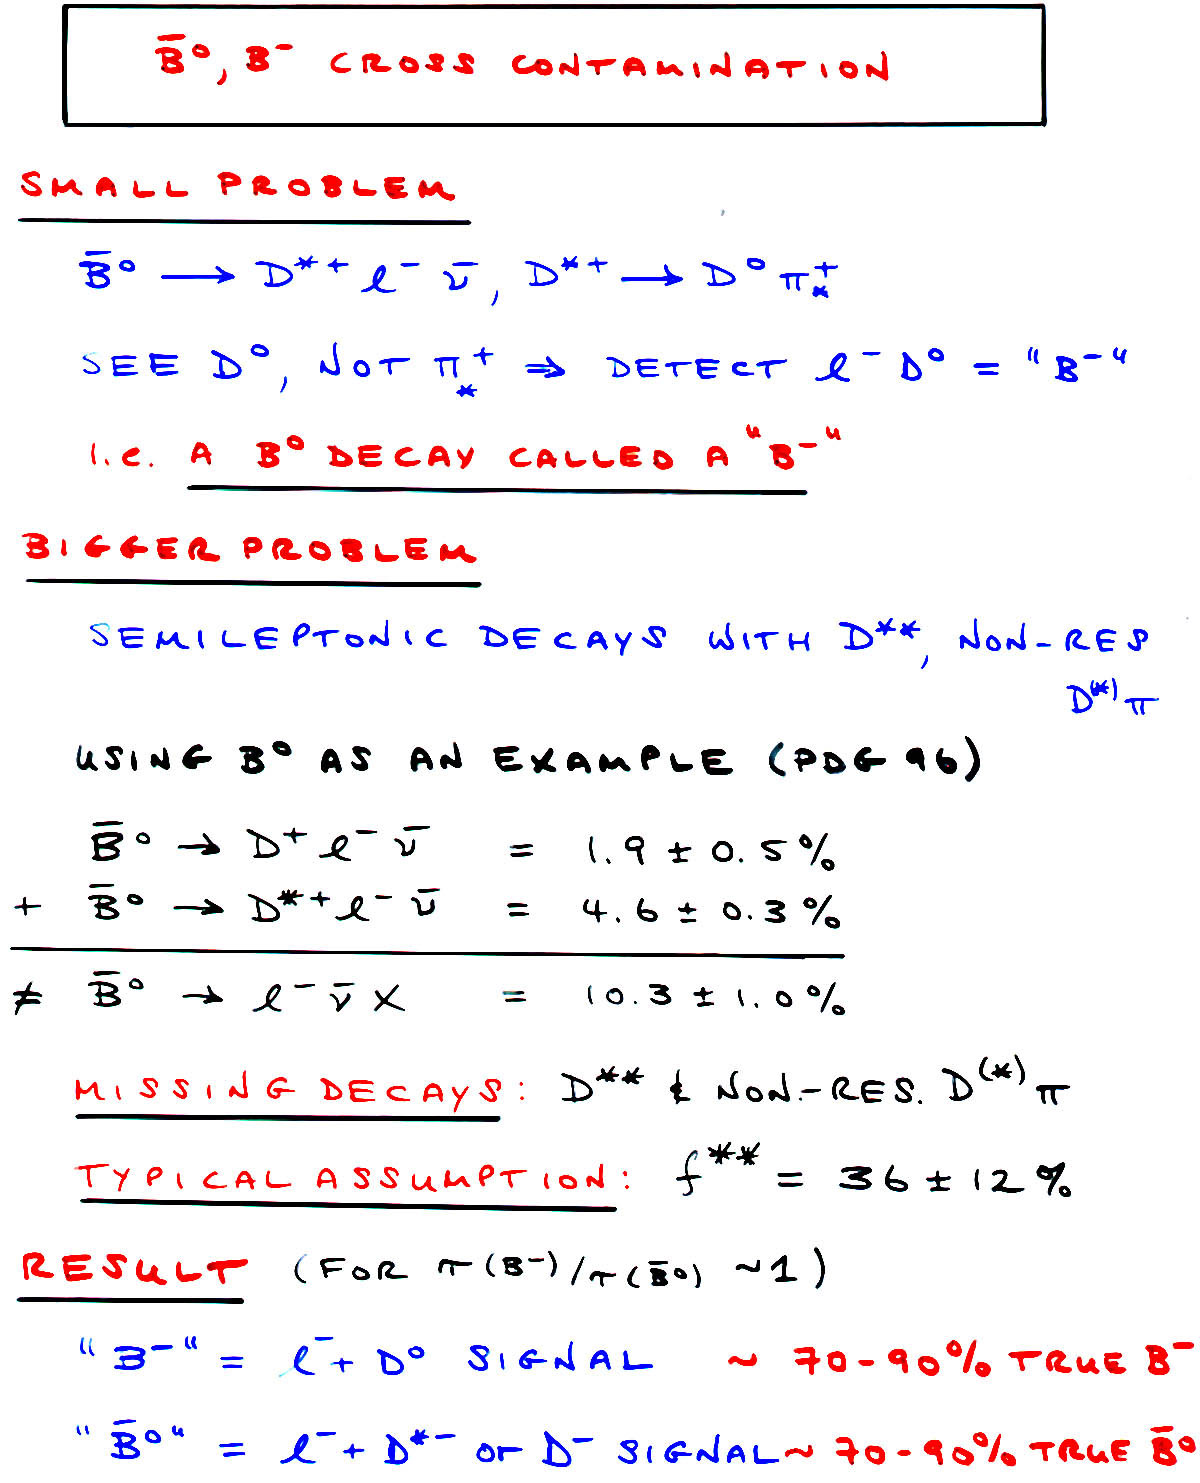 B̄⁰, B⁻ CROSS CONTAMINATION
SMALL PROBLEM
B̄⁰ ⟶ D*⁺ ℓ⁻ ν̄, D*⁺ → D⁰ π⁺*
SEE D⁰, NOT π⁺* ⇒ DETECT ℓ⁻ D⁰ = "B⁻"
I.e. A B⁰ DECAY CALLED A "B⁻"
BIGGER PROBLEM
SEMILEPTONIC DECAYS WITH D**, NON-RES
D⁽*⁾π
USING B⁰ AS AN EXAMPLE (PDG 96)
B̄⁰ → D⁺ ℓ⁻ ν̄ = 1.9 ± 0.5%
+ B̄⁰ → D*⁺ ℓ⁻ ν̄ = 4.6 ± 0.3%
≠ B̄⁰ → ℓ⁻ ν̄ X = 10.3 ± 1.0%
MISSING DECAYS: D** & NON.-RES. D⁽*⁾π
TYPICAL ASSUMPTION: f** = 36 ± 12%
RESULT (FOR τ(B⁻)/τ(B̄⁰) ~1)
"B⁻" = ℓ⁻ + D⁰ SIGNAL ~ 70-90% TRUE B⁻
"B̄⁰" = ℓ⁻ + D*⁻ or D⁻ SIGNAL ~ 70-90% TRUE B̄⁰